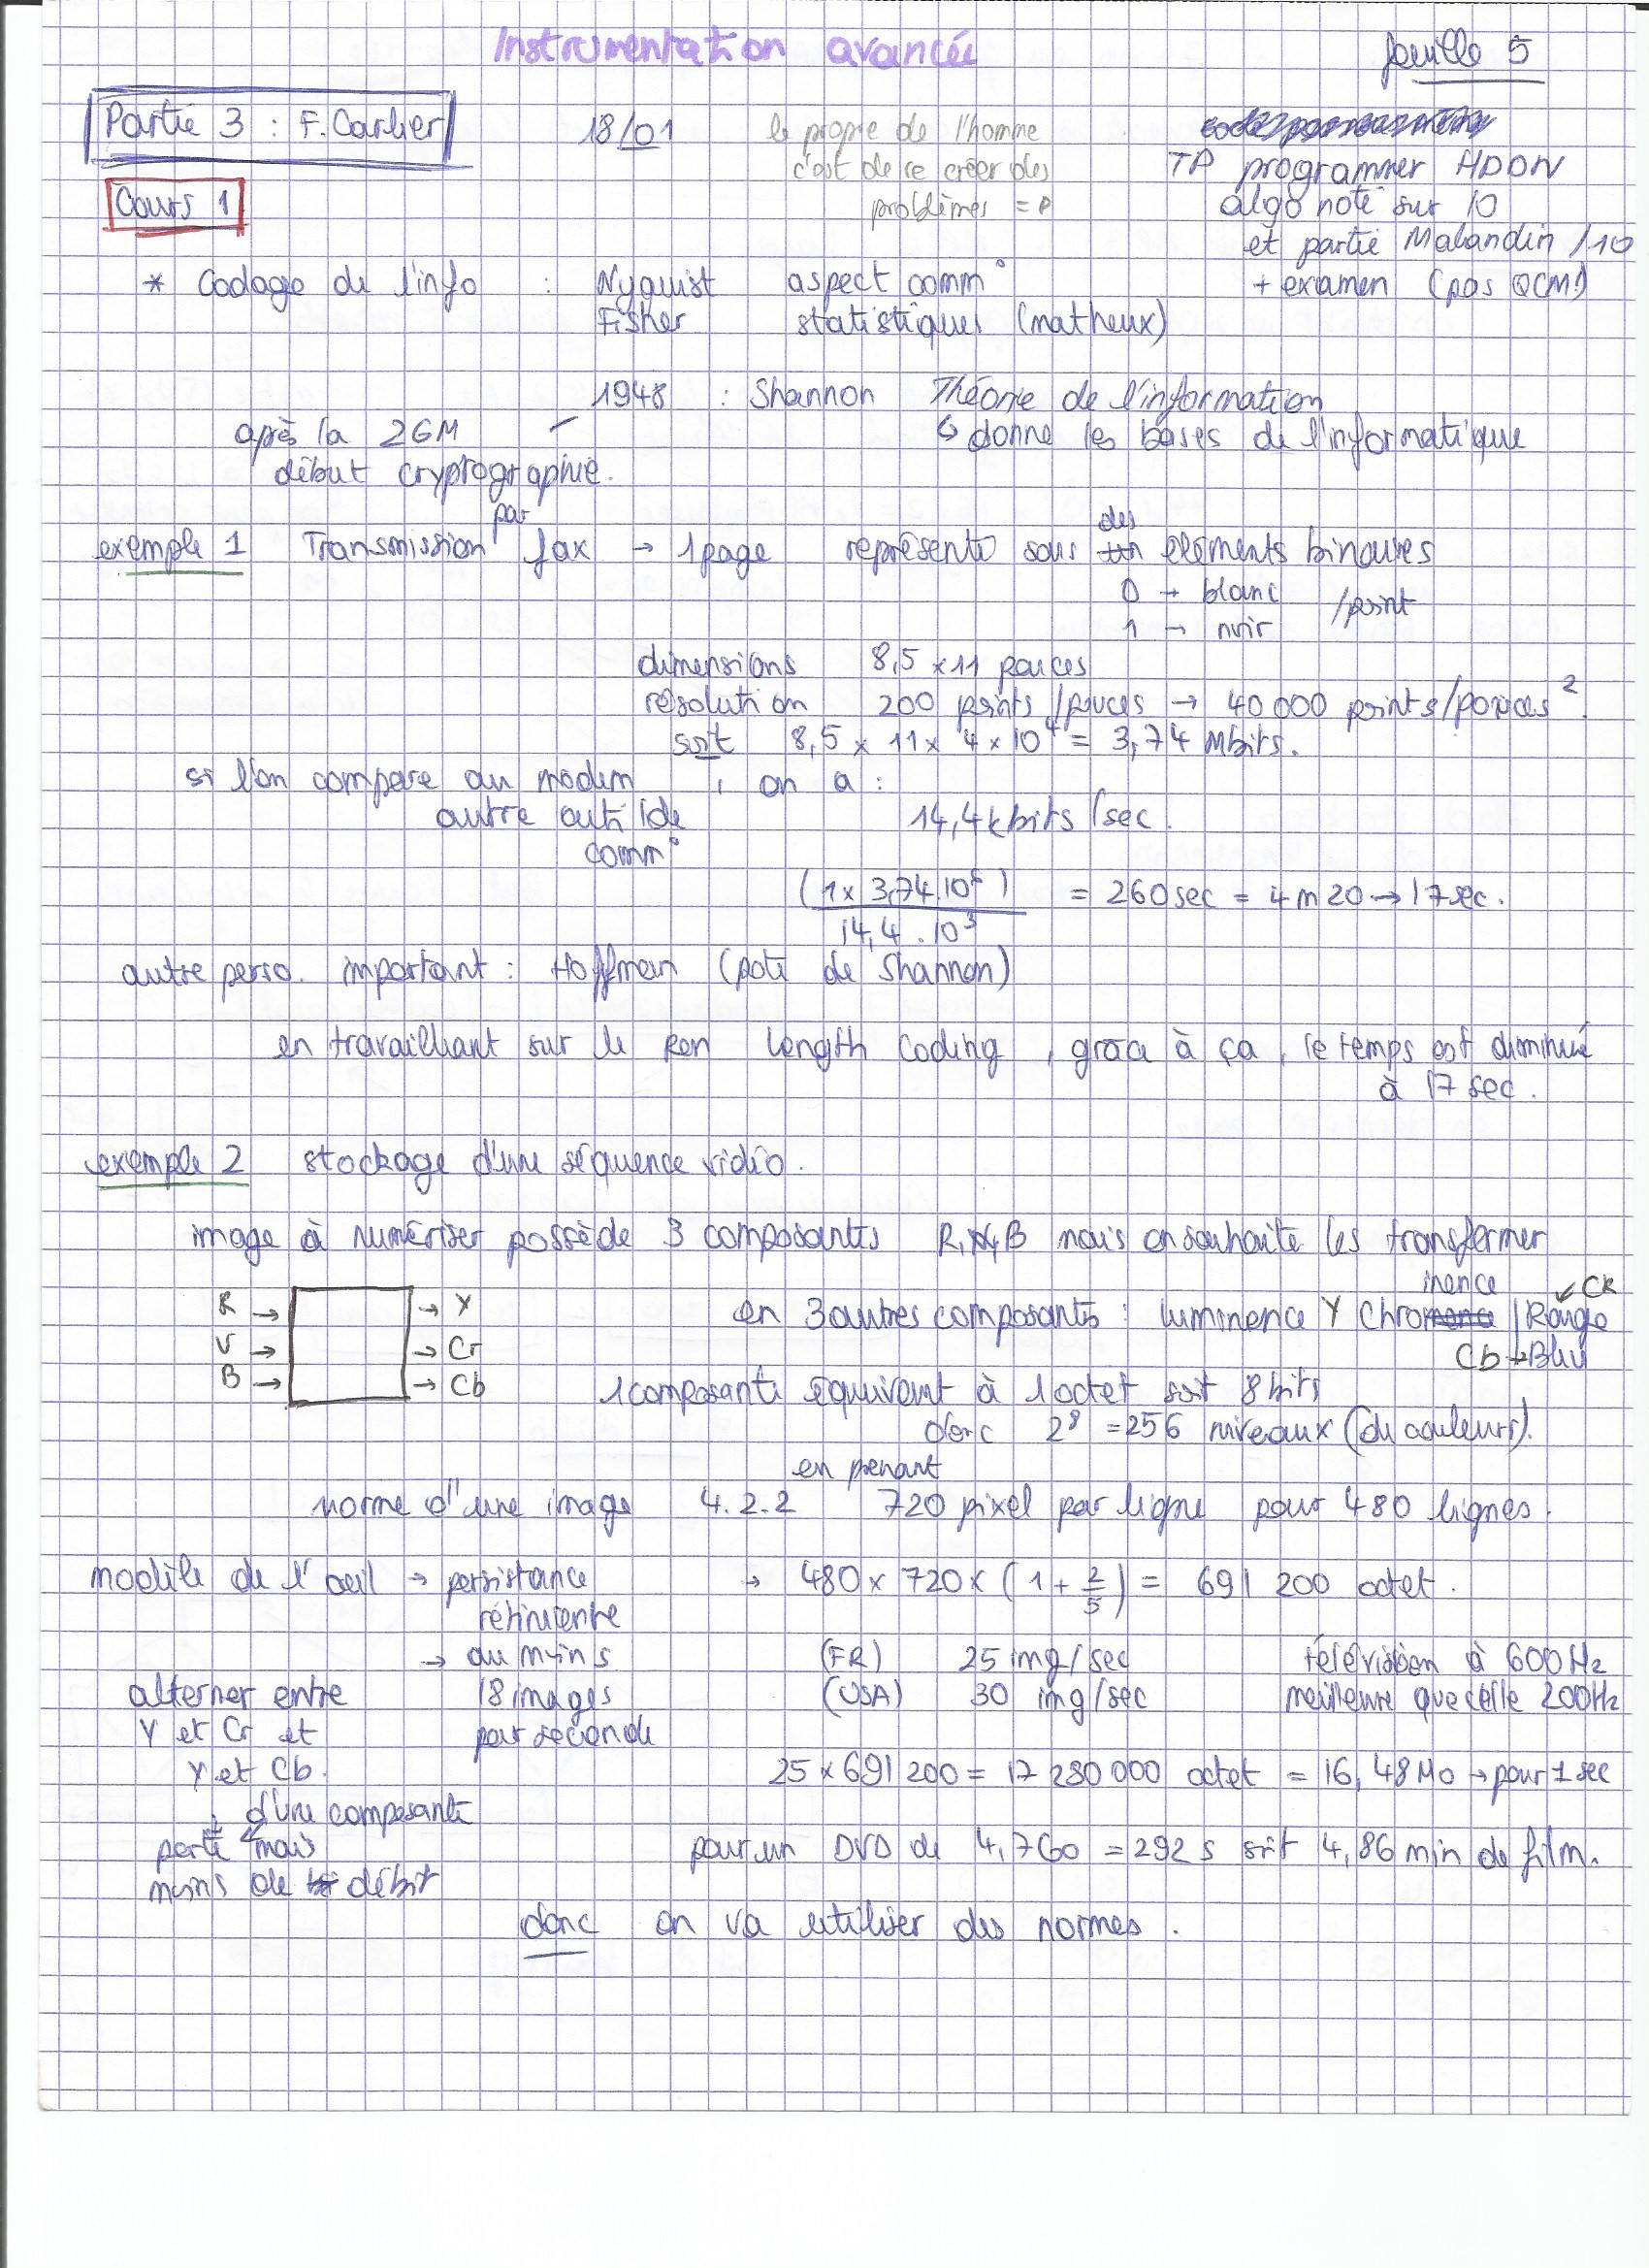 Instrumentation avancée
feuille 5
Partie 3 : F. Carlier
18/01
le propre de l'homme
c'est de se créer des
problèmes =P
TP programmer ADDN
algo noté sur 10
et partie Malandin /10
+ examen (pas QCM)
Cours 1
* Codage de l'info : Nyquist aspect comm°
Fisher statistiques (matheux)
1948 : Shannon Théorie de l'information
après la 2GM
↳ donne les bases de l'informatique
début cryptographie.
exemple 1 Transmission par fax → 1 page représenté sous des éléments binaires
0 → blanc /point
1 → noir
dimensions 8,5 x 11 pouces
résolution 200 points/pouces → 40 000 points/pouces².
soit 8,5 x 11 x 4 x 10⁴ = 3,74 Mbits.
si l'on compare au modem , on a :
autre outil de
comm°
14,4 kbits/sec.
(1 x 3,74.10⁶) / 14,4.10³ = 260 sec = 4 m 20 → 17 sec.
autre perso. important : Hoffman (pote de Shannon)
en travaillant sur le Ren Length Coding , grâce à ça, le temps est diminué
à 17 sec.
exemple 2 stockage d'une séquence vidéo.
image à numériser possède 3 composantes R, V, B mais on souhaite les transformer
en 3 autres composantes : luminence Y Chrominence / Rouge ← CR
Cb → Bleu
R → → Y
V → → Cr
B → → Cb
1 composante équivaut à 1 octet soit 8 bits
donc 2⁸ = 256 niveaux (de couleurs).
en prenant
norme d'une image 4.2.2 720 pixel par ligne pour 480 lignes.
modèle de l'oeil → persistance
rétinienne
→ au moins
18 images
par seconde
→ 480 x 720 x (1 + 2/5) = 691 200 octet.
(FR) 25 img/sec
(USA) 30 img/sec
télévision à 600Hz
meilleure que celle 200Hz
alterner entre
Y et Cr et
Y et Cb.
↓ d'une composante
perte mais
moins de débit
25 x 691 200 = 17 280 000 octet = 16,48 Mo → pour 1 sec
pour un DVD de 4,7Go = 292 s soit 4,86 min de film.
donc on va utiliser des normes.